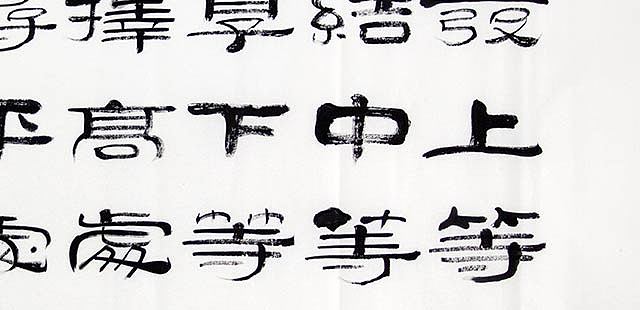 發上等
結中等
享下等
擇高處
平處